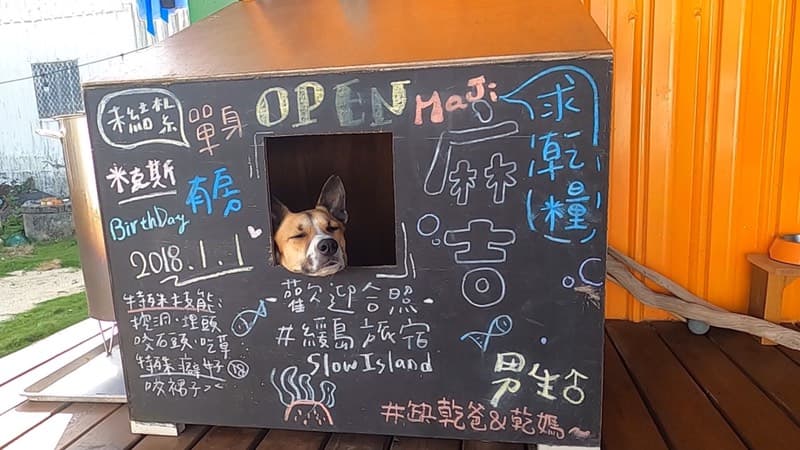 OPEN
MaJi
麻吉
求
乾
糧
單身
米克斯
有房
BirthDay
2018.1.1
特殊技能:
挖洞、埋頭
咬石頭、吃草
特殊癖好 18
咬褲子><
歡迎合照
#緩島旅宿
SlowIsland
男生
#缺乾爸&乾媽~